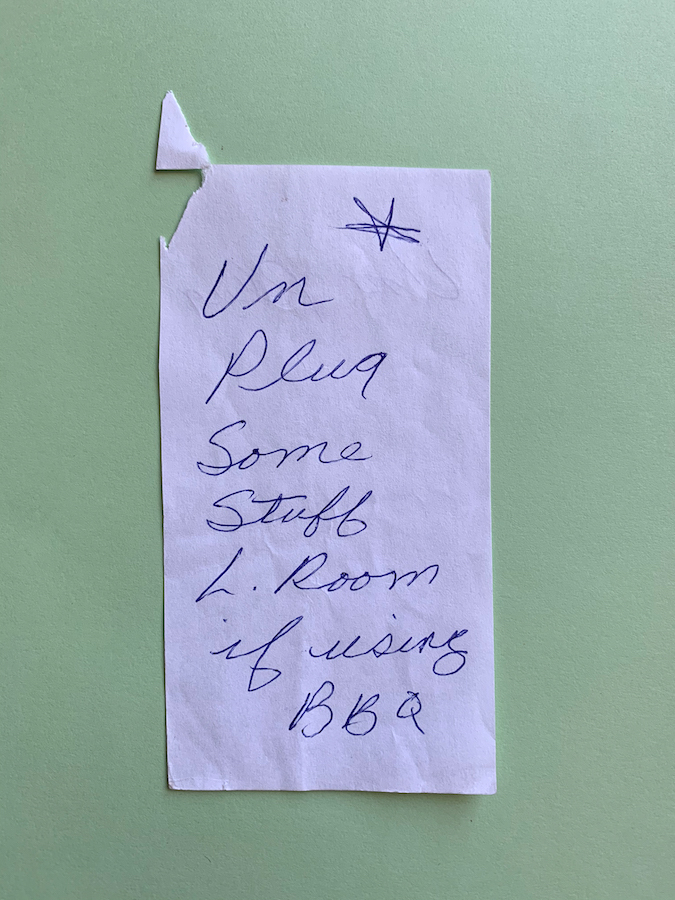 Un
Plug
Some
Stuff
L. Room
if using
BBQ